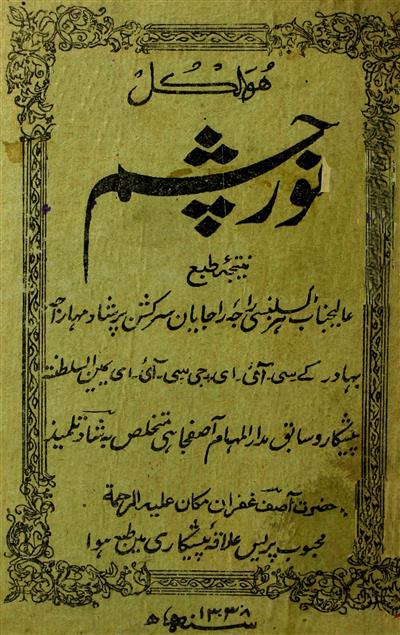 ھو الکل
نور چشم
نتیجۂ طبع
عالیجناب ہز اکسلنسی راجۂ راجایان سر کشن پرشاد مہاراجہ
بہادر کے۔سی۔آئی۔ای۔جی۔سی۔آئی۔ای یمین السلطنۃ
پیشکار و سابق مدار المہام آصفجاہی متخلص بہ شاد تلمیذ
حضرت آصف غفران مکان علیہ الرحمۃ
محبوب پریس علاقۂ پیشکاری مین طبع ہوا
سنہ ۱۳۳۸ ھ